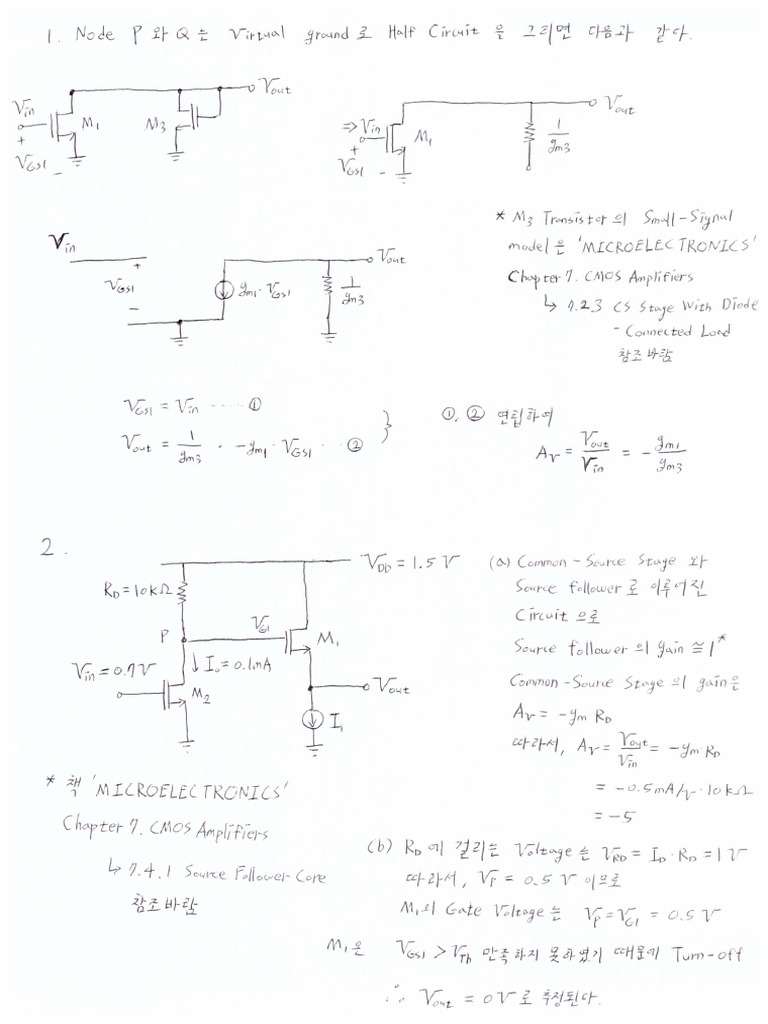 1. Node P와 Q는 Virtual ground로 Half Circuit을 그리면 다음과 같다.
Vout
Vin
M1
M3
+
VGS1 -
Vout
⇒Vin
M1
+
VGS1 -
1/gm3
* M3 Transistor의 Small-Signal
model은 'MICROELECTRONICS'
Chapter 7. CMOS Amplifiers
↳ 7.2.3 CS Stage With Diode
- Connected Load
참조바람
Vin
+
VGS1
-
gm1·VGS1
Vout
1/gm3
VGS1 = Vin ····· ①
Vout = 1/gm3 · -gm1·VGS1 ·· ②
}
①, ② 연립하여
Av = Vout/Vin = - gm1/gm3
2.
VDD = 1.5V
RD=10kΩ
P
VG1
M1
Vin = 0.7V
↓ ID=0.1mA
M2
Vout
I1
(a) Common-Source Stage 와
Source follower로 이루어진
Circuit으로
Source follower의 gain ≅ 1*
Common-Source Stage의 gain은
Av = -gm RD
따라서, Av = Vout/Vin = -gm·RD
= -0.5mA/V · 10kΩ
= -5
* 책 'MICROELECTRONICS'
Chapter 7. CMOS Amplifiers
↳ 7.4.1 Source Follower Core
참조바람
(b) RD에 걸리는 Voltage는 VRD = ID·RD = 1V
따라서, VP = 0.5V 이므로
M1의 Gate Voltage는 VP=VG1 = 0.5V
M1은 VGS1 > VTh 만족하지 못하였기 때문에 Turn-off
∴ Vout = 0V로 추정된다.